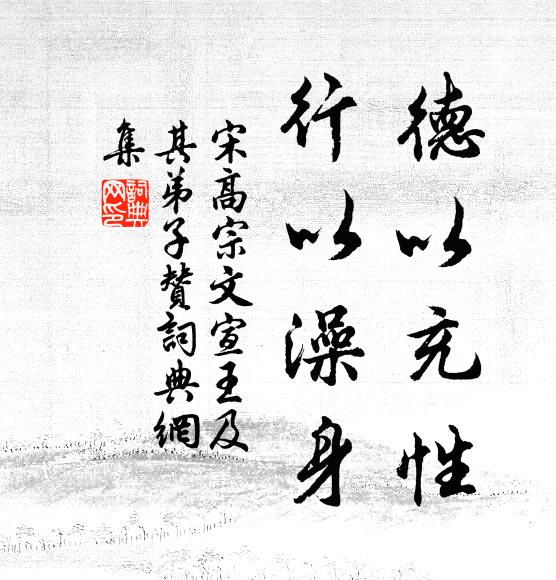 德以充性
行以澡身
宋高宗文宣王及
其弟子赞詞典網
集
詞典
网印